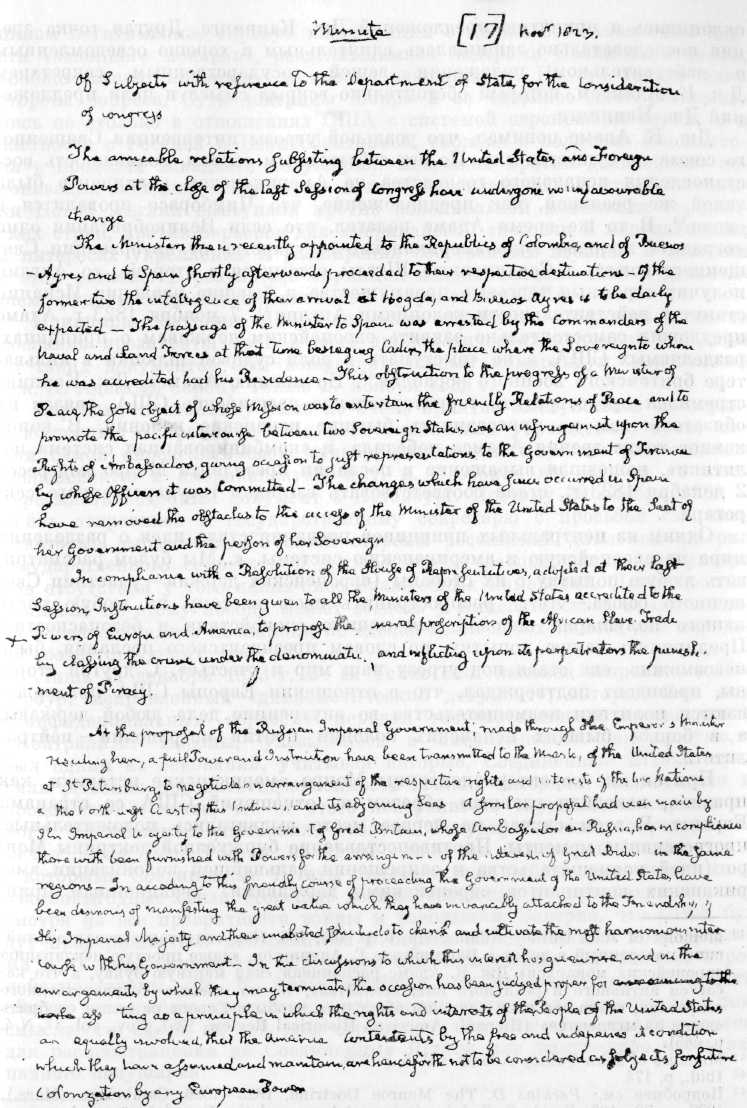 Minute [17] Novr 1823.
Of Subjects with reference to the Department of State, for the consideration
of Congress
The amicable relations subsisting between the United States and Foreign
Powers at the close of the last Session of Congress have undergone no unfavourable
change
The Ministers then recently appointed to the Republics of Colombia, and of Buenos
Ayres and to Spain shortly afterwards proceeded to their respective destinations. Of the
former two the intelligence of their arrival at Bogota, and Buenos Ayres is to be daily
expected — The passage of the Minister to Spain was arrested by the Commanders of the
Naval and Land Forces at that time besieging Cadiz, the place where the Sovereign to whom
he was accredited had his Residence. This obstruction to the progress of a Minister of
Peace, the sole object of whose Mission was to entertain the friendly Relations of Peace and to
promote the pacific intercourse between two Sovereign States was an infringement upon the
Rights of Ambassadors, giving occasion to just representations to the Government of France
by whose Officers it was committed — The changes which have since occurred in Spain
have removed the obstacles to the access of the Minister of the United States to the Seat of
her Government and the person of her Sovereign
In compliance with a Resolution of the House of Representatives, adopted at their last
Session, Instructions have been given to all the Ministers of the United States accredited to the
Powers of Europe and America, to propose the neral proscription of the African Slave Trade
by classing the crime under the denominati , and inflicting upon its perpetrators the punish-
ment of Piracy.
At the proposal of the Russian Imperial Government, made through the Emperor's Minister
residing here, a full Power and Instruction have been transmitted to the Minister of the United States
at St Petersburg, to negotiate an arrangement of the respective rights and interests of the two Nations
the North west Coast of this Continent and its adjoining Seas. A similar proposal had been made by
His Imperial Majesty to the Government of Great Britain, whose Ambassador in Russia, has in compliance
therewith been furnished with Powers for the arrangemen of the interests of Great Britain in the same
regions — In acceding to this friendly course of proceeding the Government of the United States, have
been desirous of manifesting the great value which they have invariably attached to the Friendship of
His Imperial Majesty and their solicitude to cherish and cultivate the most harmonious inter-
course with his Government. In the discussions to which this interest has given rise, and in the
arrangements by which they may terminate, the occasion has been judged proper for asserting as a principle in which the rights and interests of the People of the United States
are equally involved, that the American Continents by the free and independent condition
which they have assumed and maintain, are henceforth not to be considered as subjects for future
Colonization by any European Power